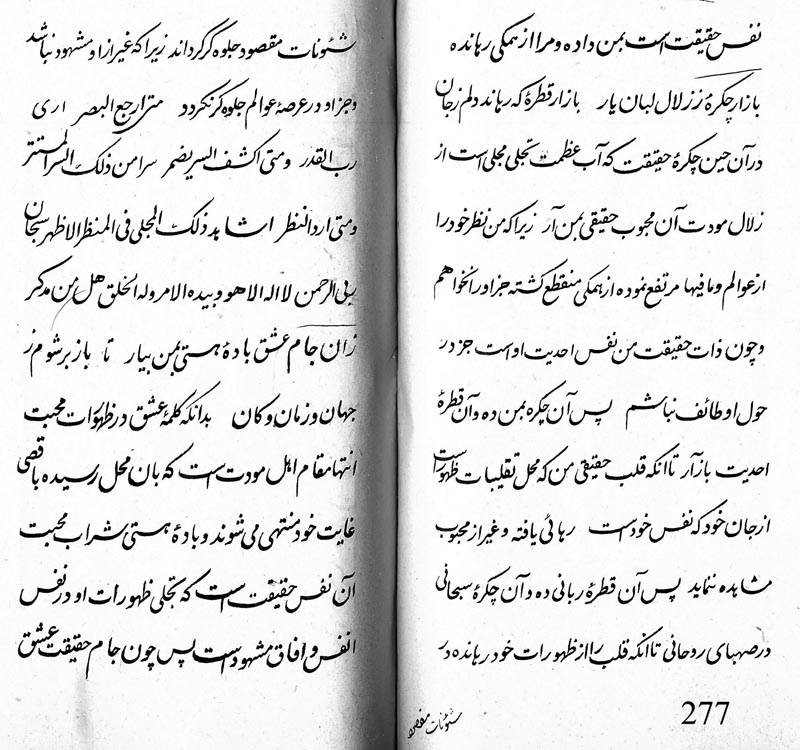 نفس حقیقت است بمن داده و مرا از همکی رهانده
بازار چکرهٔ ززلال لبان یار بازار قطرهٔ که رهاند دلم زجان
در آن حین چکرهٔ حقیقت که آب عظمت تجلی مجلی است از
زلال مودت آن محبوب حقیقی بمن آر زیرا که من نظر خود را
از عوالم و مافیها مرتفع نموده از همکی منقطع کشته جز او را نخواهم
و چون ذات حقیقت من نفس احدیت او است جز در
حول او طائف نباشم پس آن چکره بمن ده و آن قطرهٔ
احدیت بازآر تا انکه قلب حقیقی من که محل تقلیبات ظهورات است
از جان خود که نفس خود است رهائی یافته و غیر از محبوب
مشاهده ننماید پس آن قطرهٔ ربانی ده و آن چکرهٔ سبحانی
در صهبای روحانی تا انکه قلب را از ظهورات خود رهانده در
شئونات مقصود
277
شئونات مقصود جلوه کر کرداند زیرا که غیر از او مشهود نباشد
و جز او در عرصهٔ عوالم جلوه کر نکردد متی ارجع البصر اری
رب القدر و متی اکشف السر یضمر سرا من ذلک السر المستتر
و متی ارد النظر اشاهد ذلک المجلی فی المنظر الاظهر سبحان
ربی الرحمن لا اله الا هو و بیده الامر و له الخلق هل من مدکر
زان جام عشق بادهٔ هستی بمن بیار تا باز بر شوم ز
جهان و زمان و کان بدانکه کلمهٔ عشق در ظهورات محبت
انتها مقام اهل مودت است که بان محل رسیده باقصی
غایت خود منتهی می شوند و بادهٔ هستی شراب محبت
آن نفس حقیقت است که تجلی ظهورات او در نفس
انفس و افاق مشهود است پس چون جام حقیقت عشق